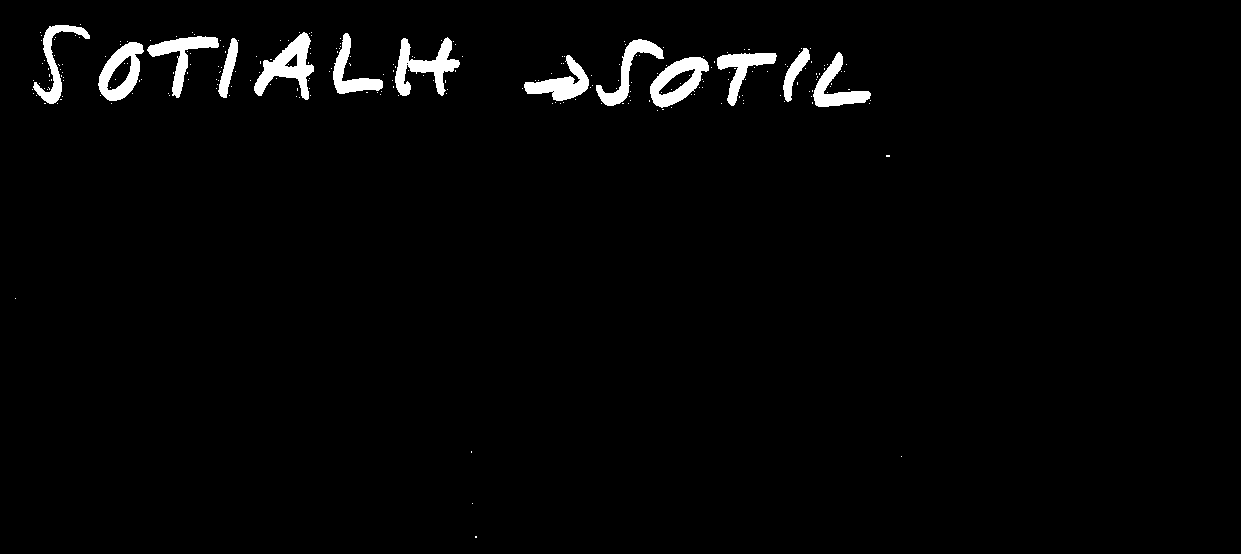 SOTIALH →SOTIL